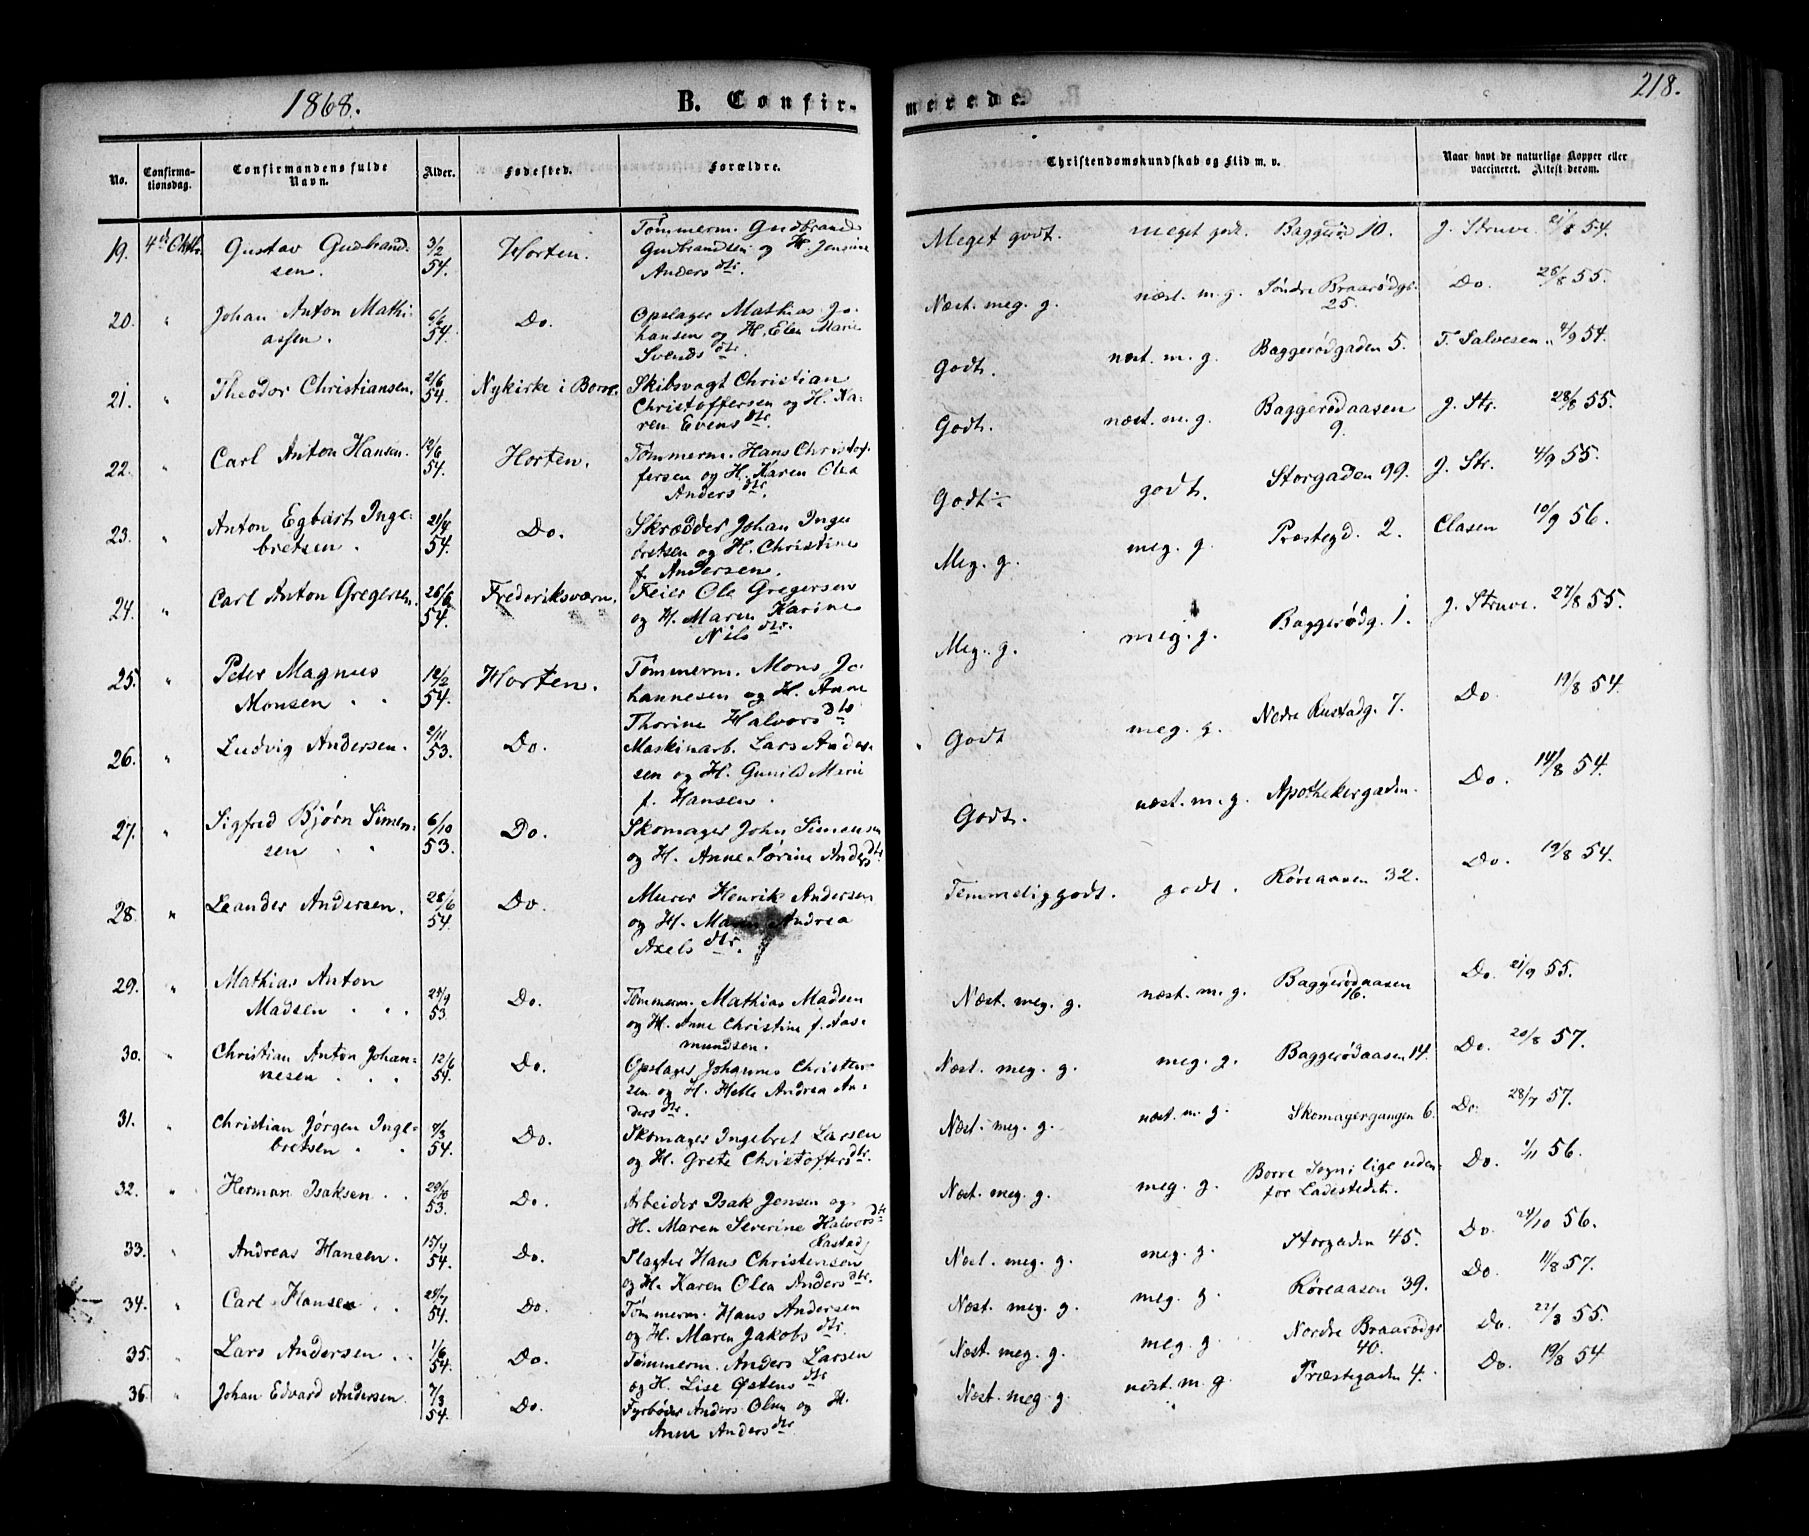 1868.
B. Confir-
merede.
218.
No.
Confirma-
tionsdag.
Confirmandens fulde
Navn.
Alder.
Fødested.
Forældre.
Christendomskundskab og Flid m. v.
Naar havt de naturlige Kopper eller
vaccineret. Attest derom.
19. 4de Oktbr. Gustav Gudbrand-
sen. 3/2 54. Horten.
Tømmerm. Gudbrand
Gudbrandsen og H. Jensine
Anders dtr.
Meget godt. meget godt. Baggerød 10. J. Struve. 21/8 54.
20. " Johan Anton Mathi-
assen. 6/6 54. Do.
Opslager Mathias Jo-
hansen og H. Elen Marie
Svends dtr.
Næst. meg. g. næst. m. g. Søndre Braarødgd. 25. Do. 28/8 55.
21. " Theodor Christiansen. 21/6 54. Nykirke i Borre.
Skibsvagt Christian
Christoffersen og H. Ka-
ren Evens dtr.
Godt. næst. m. g. Baggerødgaden 5. T. Salvesen 4/9 54.
22. " Carl Anton Hansen. 12/6 54. Horten.
Tømmerm. Hans Christof-
fersen og H. Karen Olea
Anders dtr.
Godt. næst. m. g. Baggerødaasen 9. J. Str. 28/8 55.
23. " Anton Egbart Inge-
bretsen. 21/4 54. Do.
Skrædder Johan Inge
bretsen og H. Christine
f. Andersen.
Godt. godt. Storgaden 99. J. Str. 4/9 55.
24. " Carl Anton Gregersen. 26/6 54. Frederiksværn.
Feier Ole Gregersen
og H. Maren Karine
Nils dtr.
Meg. g. meg. g. Præstegd. 2. Clasen 10/9 56.
25. " Peter Magnus
Monsen " " 12/2 54. Horten.
Tømmerm. Mons Jo-
hannesen og H. Anne
Thorine Halvors dtr
Meg. g. meg. g. Baggerødg. 1. J. Struve. 27/8 55.
26. " Ludvig Andersen. 2/11 53. Do.
Maskinarb. Lars Ander-
sen og H. Gunild Marie
f. Hansen.
Godt meg. g. Nedre Rustadg. 7. Do. 19/8 54.
27. " Sigfred Bjørn Simen-
sen " " 6/10 53. Do.
Skomager John Simensen
og H. Anne Sørine Anders dtr
Godt. næst. m. g. Apothekergaden. Do. 14/8 54.
28. " Leander Andersen. 28/6 54. Do.
Murer Henrik Andersen
og H. Maren Andrea
Axels dtr.
Temmelig godt. godt. Røreaasen 32. Do. 19/8 54.
29. " Mathias Anton
Madsen " " 24/9 53. Do.
Tømmerm. Mathias Madsen
og H. Anne Christine f. Aas-
mundsen.
Næst. meg. g. næst. m. g. Baggerødaasen 16. Do. 21/9 55.
30. " Christian Anton Johan-
nesen " " 12/6 54. Do.
Opslager Johannes Christen-
sen og H. Helle Andrea An-
ders dtr.
Næst. meg. g. meg. g. Baggerødaasen 14. Do. 20/8 57.
31. " Christian Jørgen Inge-
bretsen " " 9/3 54. Do.
Skomager Ingebret Larsen
og H. Grete Christoffers dtr.
Næst. meg. g. næst. m. g. Skomagergangen 6. Do. 28/7 57.
32. " Herman Isaksen " " 29/10 53. Do.
Arbeider Isak Jensen og
H. Maren Severine Halvors dtr
Rastad
Næst. meg. g. meg. g. Borre Sogn; lige uden-
for Ladestedet. Do. 1/11 56.
33. " Andreas Hansen. 15/4 54. Do.
Slagter Hans Christensen
og H. Karen Olea Anders dtr.
Næst. meg. g. meg. g. Storgaden 45. Do. 24/10 56.
34. " Carl Hansen " " 25/7 54. Do.
Tømmerm. Hans Andersen
og H. Maren Jakobs dtr.
Næst. meg. g. meg. g. Røreaasen 39. Do. 11/8 57.
35. " Lars Andersen " " 1/6 54. Do.
Tømmerm. Anders Larsen
og H. Lise Østens dtr
Næst. meg. g. meg. g Nordre Braarødgd 40. Do. 22/3 55.
36. " Johan Edvard Andersen. 7/3 54. Do.
Fyrbøder Anders Olsen og H.
Anne Anders dtr.
Næst. meg. g. næst. m. g Præstegaden 4. Do. 19/8 54